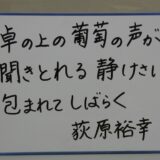 卓の上の葡萄の声が
聞きとれる静けさに
包まれてしばらく
荻原裕幸